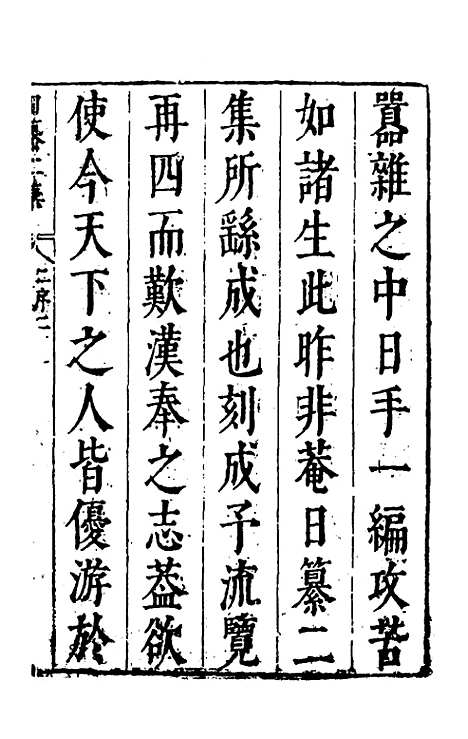 囂雜之中日手一編攻苦
如諸生此昨非菴日纂二
集所繇成也刻成予流覽
再四而歎漢奉之志葢欲
使今天下之人皆優游於
日纂二集
二序二